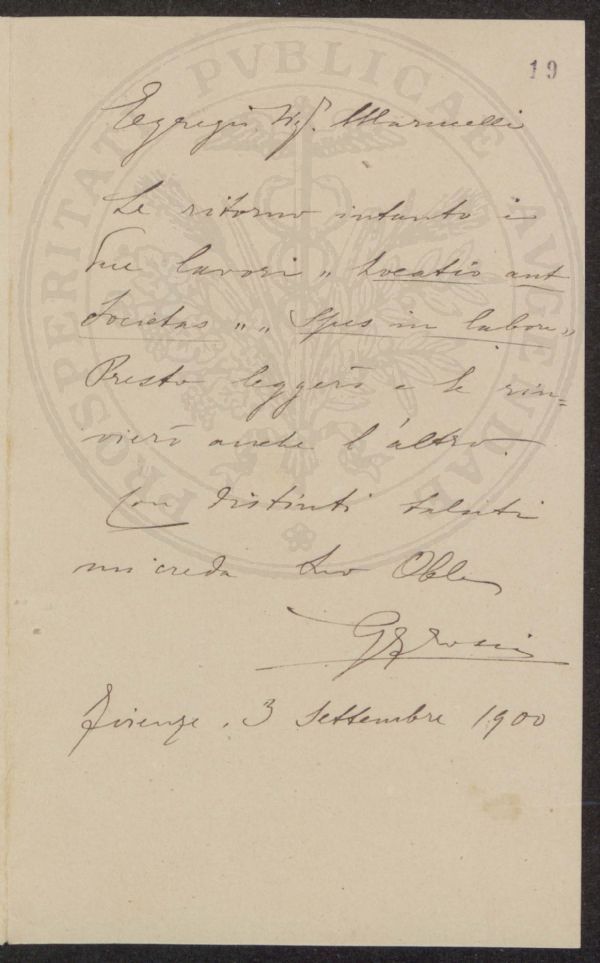 19
Egregio Sigr. Marinelli
Le ritorno intanto i
Suoi lavori „ Locatio aut
Societas „ „ Spes in labore „
Presto leggerò e Le rin=
vierò anche l'altro.
Con distinti saluti
mi creda Suo Obbl.
Firenze, 3 Settembre 1900
PROSPERITATI PVBLICAE AVGENDAE